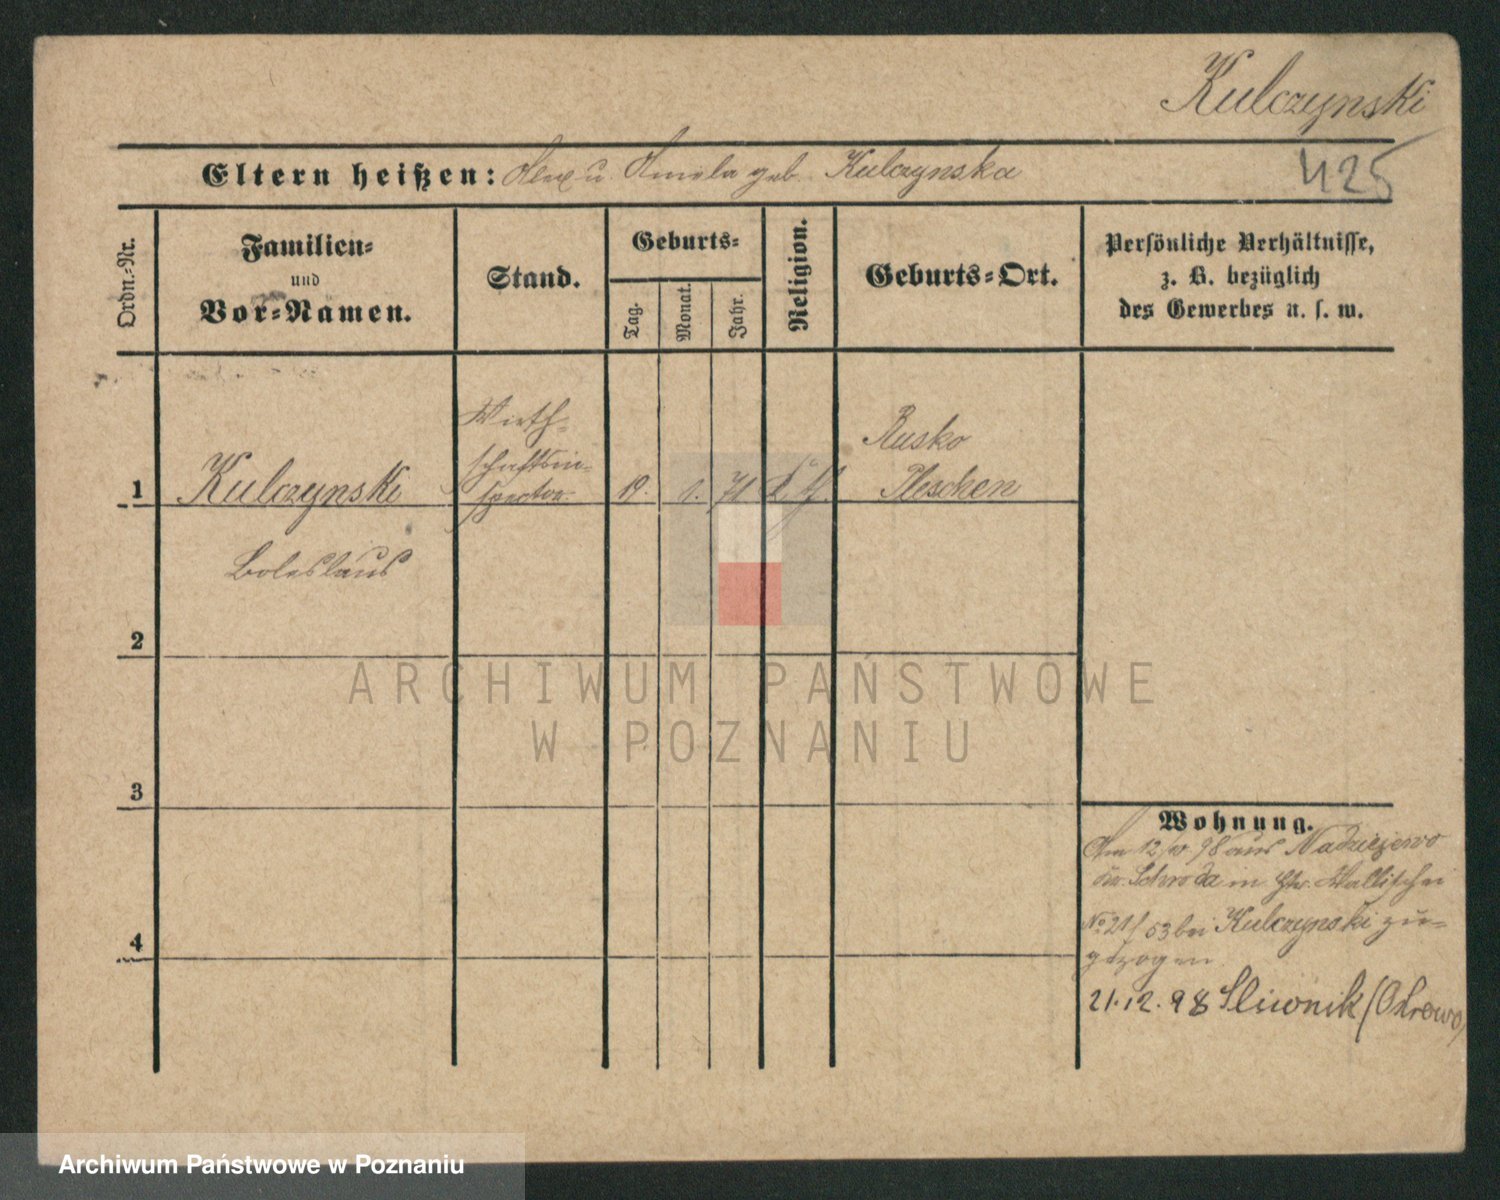 Kulczynski
425
Eltern heißen: Alex u. Amela geb. Kulczynska
Ordn.-Nr.
Familien-
und
Vor-Namen.
Stand.
Geburts-
Tag.
Monat.
Jahr.
Religion.
Geburts-Ort.
Persönliche Verhältnisse,
z. B. bezüglich
des Gewerbes u. s. w.
Wirth-
schaftsin-
spector
1 Kulczynski 19. 1. 71 k.
Rusko
Pleschen
Boleslaus
2
3
4
Wohnung.
Am 12/10 98 aus Nadziejewo
Kr. Schroda Wallischei
No 21/53 bei Kulczynski zu-
gezogen
21.12.98 Sliwnik (Ostrowo)
ARCHIWUM PAŃSTWOWE
W POZNANIU
Archiwum Państwowe w Poznaniu